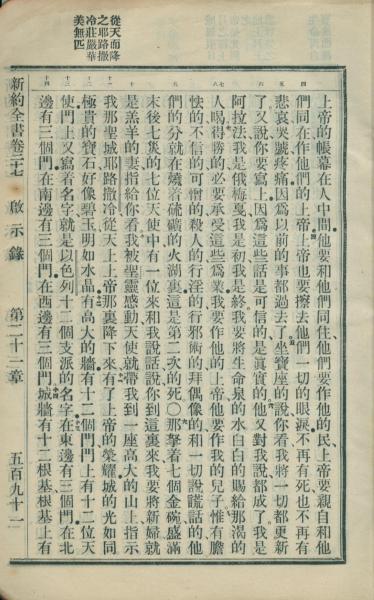 上帝的帳幕在人中間他要和他們同住他們要作他的民上帝要親自和他
們同在作他們的上帝上帝也要擦去他們一切的眼淚不再有死也不再有
悲哀哭號疼痛因爲以前的事都過去了坐寶座的說你看我將一切都更新
了又說你要寫上因爲這些話是可信的是眞實的他又對我說都成了我是
阿拉法我是俄梅戛我是初我是終我要將生命泉的水白白的賜給那渴的
人賜得勝的必要承受這些爲業我要作他的上帝他要作我的兒子惟有膽
怯的不信的可憎的殺人的行淫的行邪術的拜偶像的和一切說謊話的他
們的分就在燒着硫磺的火湖裏這是第二次的死〇那拏着七個金碗盛滿
末後七災的七位天使中有一位來和我說話說你到這裏來我要將新婦就
是羔羊的妻指給你看我被聖靈感動天使就帶我到一座高大的山上指示
我那聖城耶路撒冷從天上上帝那裏降下來有了上帝的榮耀城的光如同
極貴的寶石好像碧玉明如水晶有高大的牆有十二個門門上有十二位天
使門上又寫着名字就是以色列十二個支派的名字在東邊有三個門在北
邊有三個門在南邊有三個門在西邊有三個門城牆有十二根基根基上有
新約全書卷二十七 啟示錄 第二十一章 五百九十一
從天而降
之耶路撒
冷莊嚴華
美無匹
四
五
六
七
八
九
十
十一
十二
十三
十四